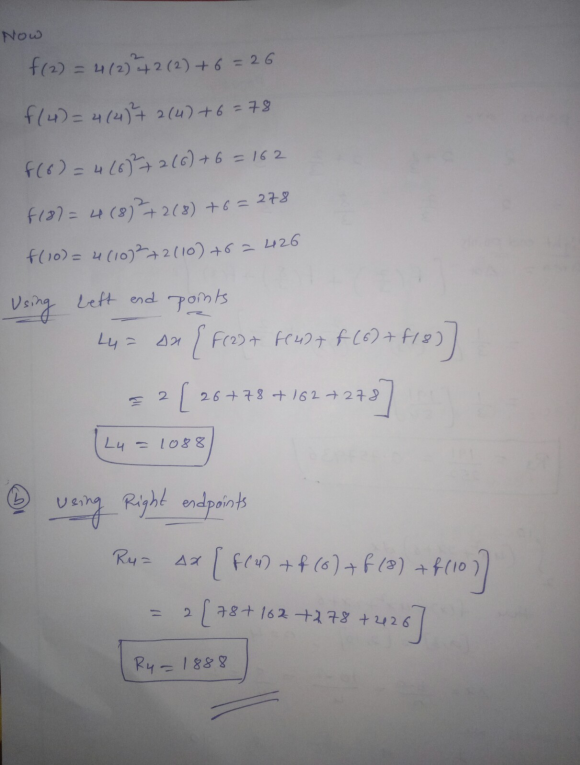 Now
f(2) = 4(2)²+2(2)+6 = 26
f(4) = 4(4)²+ 2(4)+6 = 78
f(6) = 4(6)²+2(6)+6 = 162
f(8) = 4(8)²+2(8) +6 = 278
f(10) = 4(10)²+2(10)+6 = 426
Using Left end points
L4 = Δx [ f(2)+ f(4)+ f(6)+f(8)]
= 2 [ 26+78+162+278]
L4 = 1088
(b) Using Right endpoints
R4 = Δx [ f(4)+f(6)+f(8)+f(10)]
= 2 [78+162+278+426]
R4 = 1888